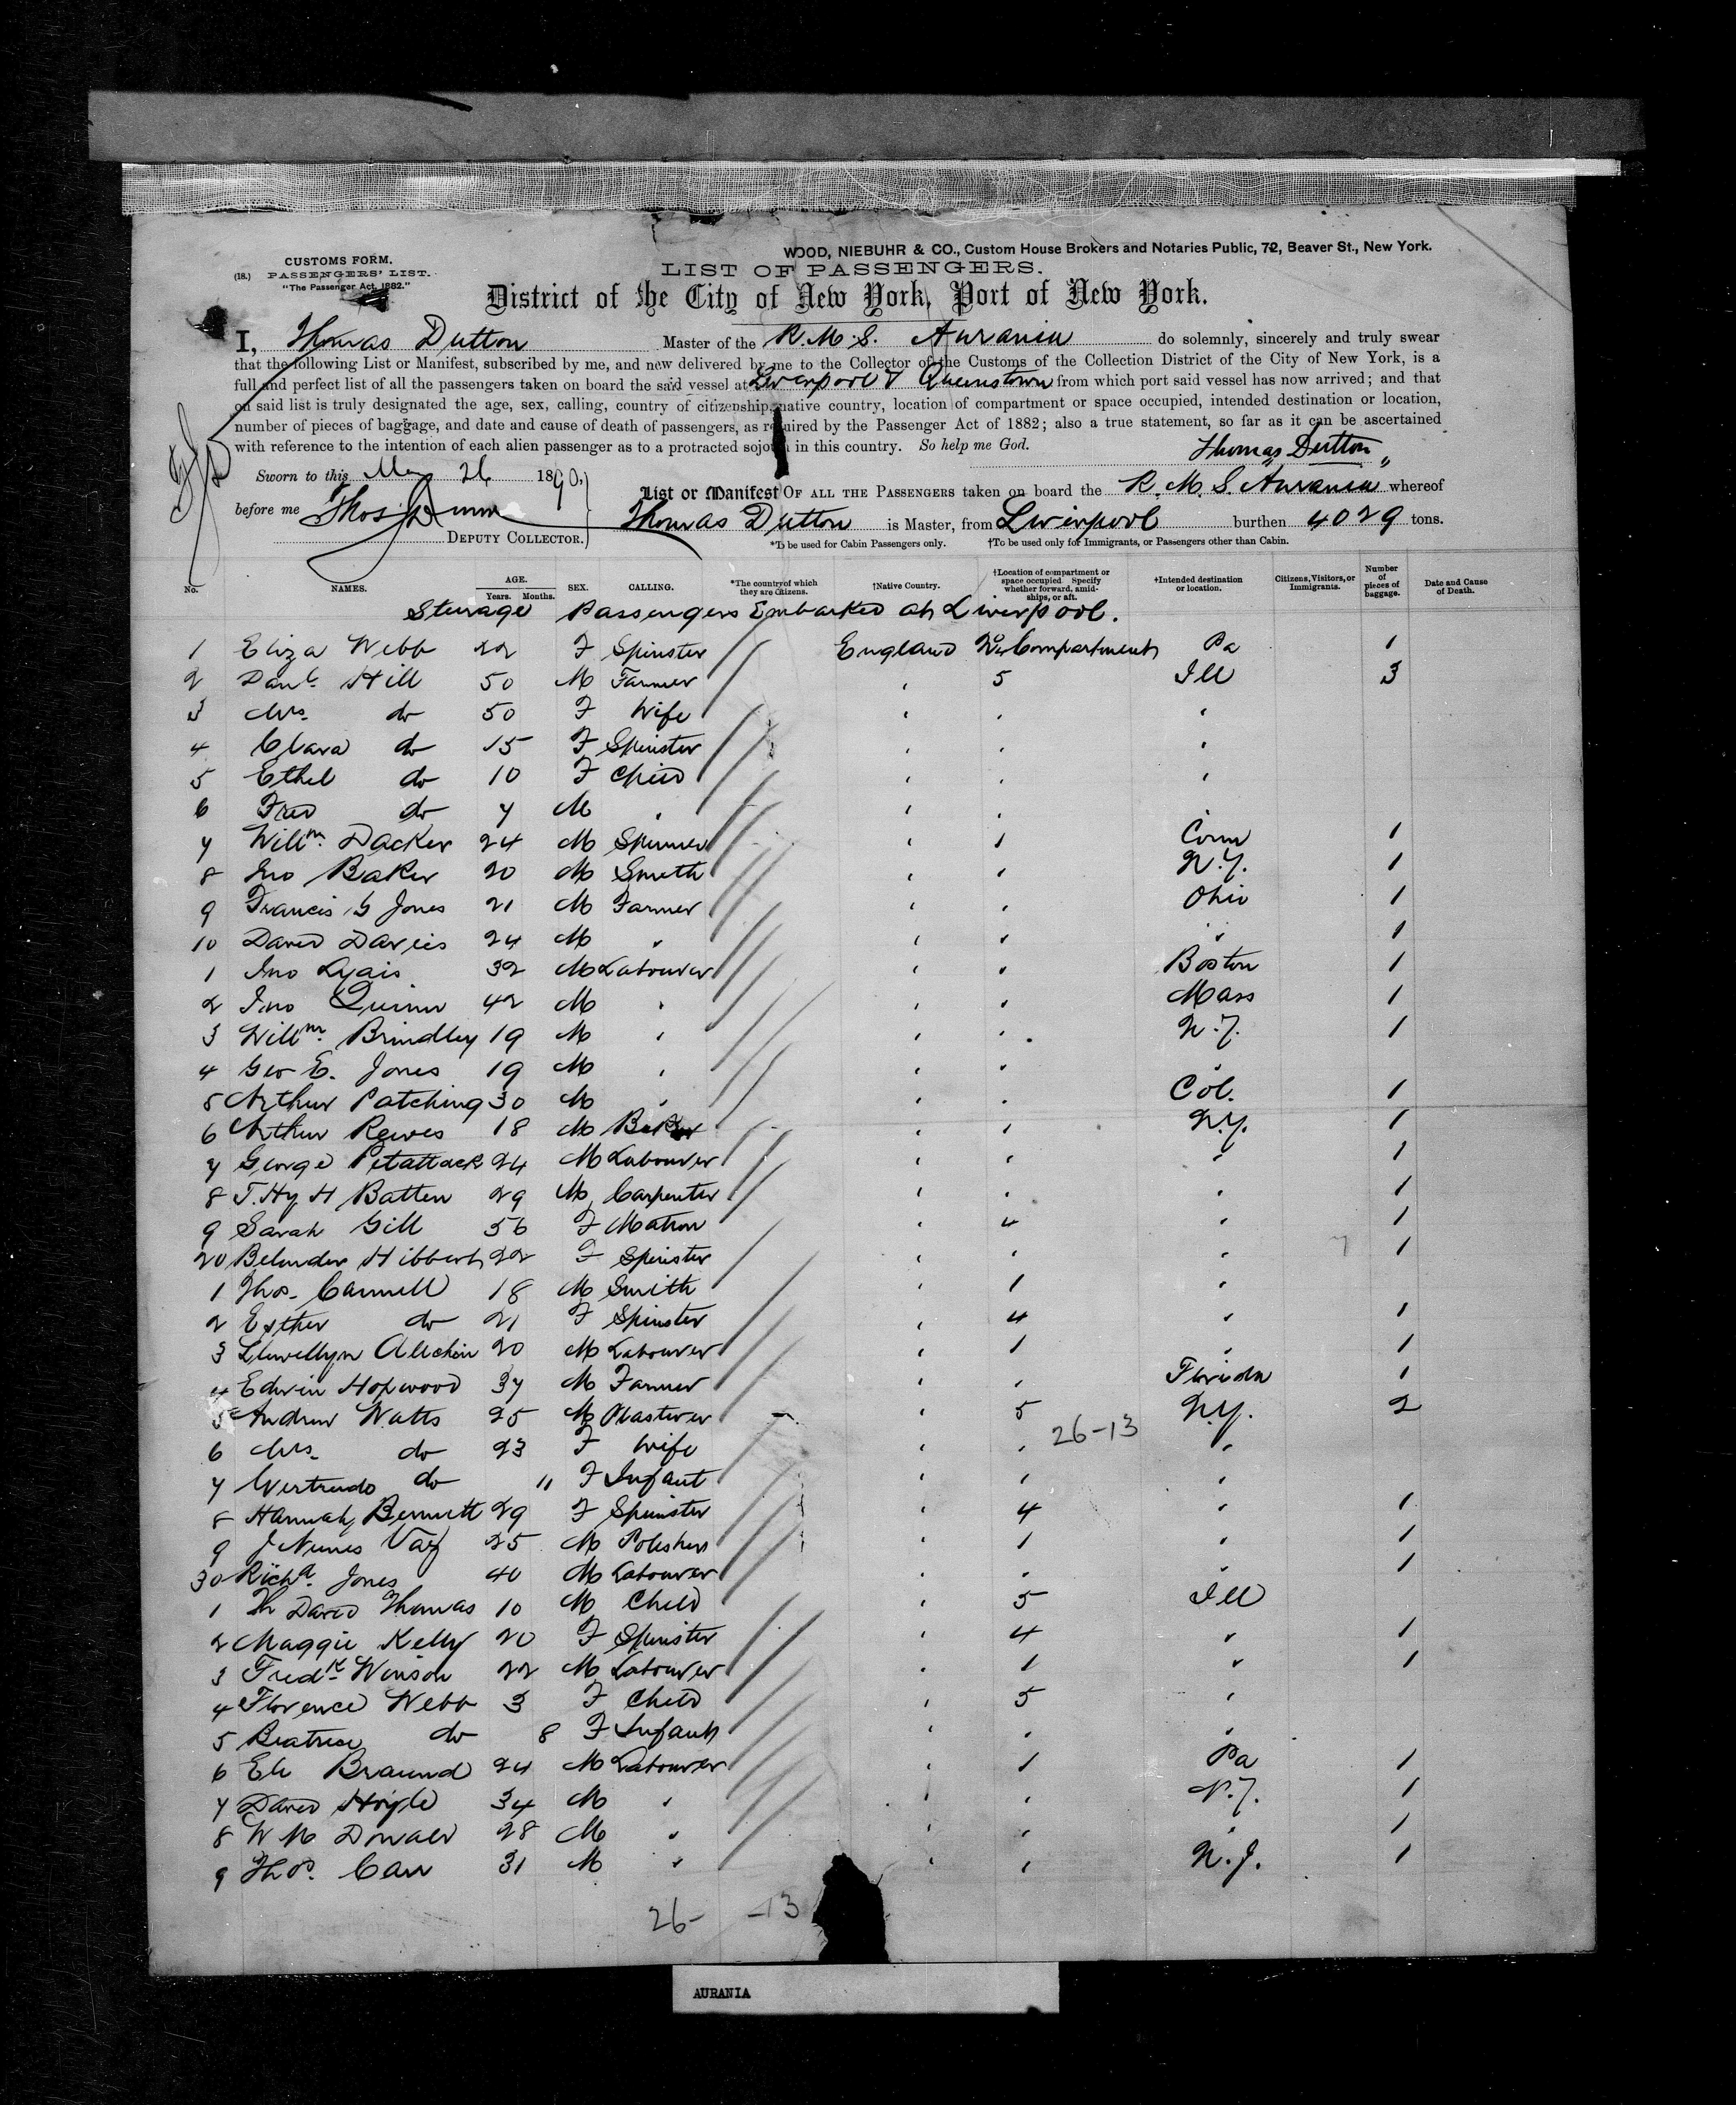 WOOD, NIEBUHR & CO., Custom House Brokers and Notaries Public, 72, Beaver St., New York.
CUSTOMS FORM.
(18.) PASSENGERS' LIST.
"The Passenger Act, 1882."
LIST OF PASSENGERS.
District of the City of New York, Port of New York.
I, Thomas Dutton Master of the R.M.S. Aurania do solemnly, sincerely and truly swear
that the following List or Manifest, subscribed by me, and now delivered by me to the Collector of the Customs of the Collection District of the City of New York, is a
full and perfect list of all the passengers taken on board the said vessel at Liverpool & Queenstown from which port said vessel has now arrived; and that
on said list is truly designated the age, sex, calling, country of citizenship, native country, location of compartment or space occupied, intended destination or location,
number of pieces of baggage, and date and cause of death of passengers, as required by the Passenger Act of 1882; also a true statement, so far as it can be ascertained
with reference to the intention of each alien passenger as to a protracted sojourn in this country. So help me God.
Thomas Dutton
Sworn to this May 26 1890.
List or Manifest OF ALL THE PASSENGERS taken on board the R.M.S. Aurania whereof
before me Thos
Thomas Dutton is Master, from Liverpool burthen 4029 tons.
DEPUTY COLLECTOR.
*To be used for Cabin Passengers only. †To be used only for Immigrants, or Passengers other than Cabin.
No. NAMES. AGE. Years. Months. SEX. CALLING. *The country of which they are citizens. †Native Country. †Location of compartment or space occupied. Specify whether forward, amidships, or aft. †Intended destination or location. Citizens, Visitors, or Immigrants. Number of pieces of baggage. Date and Cause of Death.
Steerage Passengers Embarked at Liverpool.
1 Eliza Webb 22 F Spinster England Compartment Pa 1
2 Danl. Hill 50 M Farmer ' 5 Ill 3
3 Mrs. do 50 F Wife ' ' '
4 Clara do 15 F Spinster ' ' '
5 Ethel do 10 F Child ' ' '
6 Fred do 7 M ' ' ' '
7 Willm. Dacker 24 M Spinner ' 1 Conn 1
8 Jno Baker 20 M Smith ' ' N.Y. 1
9 Francis G Jones 21 M Farmer ' ' Ohio 1
10 David Davies 24 M ' ' ' ' 1
1 Jno 32 M Labourer ' ' Boston 1
2 Jno Quinn 42 M ' ' ' Mass 1
3 Willm. Brindley 19 M ' ' ' N.Y. 1
4 Geo E. Jones 19 M ' ' ' '
5 Arthur Patching 30 M ' ' ' Col. 1
6 Arthur Reeves 18 M Baker ' ' N.Y. 1
7 George 24 M Labourer ' ' ' 1
8 J. Hy H Batten 29 M Carpenter ' ' ' 1
9 Sarah Gill 56 F Matron ' 4 ' 1
20 Belinder Hibbert 22 F Spinster ' ' ' 1
1 Thos. Cannell 18 M Smith ' 1 '
2 Esther do 21 F Spinster ' 4 ' 1
3 Llewellyn Allchin 20 M Labourer ' 1 ' 1
4 Edwin Hopwood 37 M Farmer ' ' Florida 1
5 Andrew Watts 25 M Plasterer ' 5 N.Y. 2
26-13
6 Mrs. do 23 F Wife ' ' '
7 Gertrude do 11 F Infant ' ' '
8 Hannah Bennett 29 F Spinster ' 4 ' 1
9 J Nunes Vaz 25 M Polisher ' 1 ' 1
30 Richd. Jones 40 M Labourer ' ' ' 1
1 David Thomas 10 M Child ' 5 Ill
2 Maggie Kelly 20 F Spinster ' 4 ' 1
3 Fredk. Winson 22 M Labourer ' 1 ' 1
4 Florence Webb 3 F Child ' 5 '
5 Beatrice do 8 F Infant ' ' '
6 Eli Braund 24 M Labourer ' 1 Pa 1
7 David Hoyle 34 M ' ' ' N.Y. 1
8 W M Donald 28 M ' ' ' ' 1
9 Thos. Carr 31 M ' ' ' N.J. 1
26- -13
AURANIA